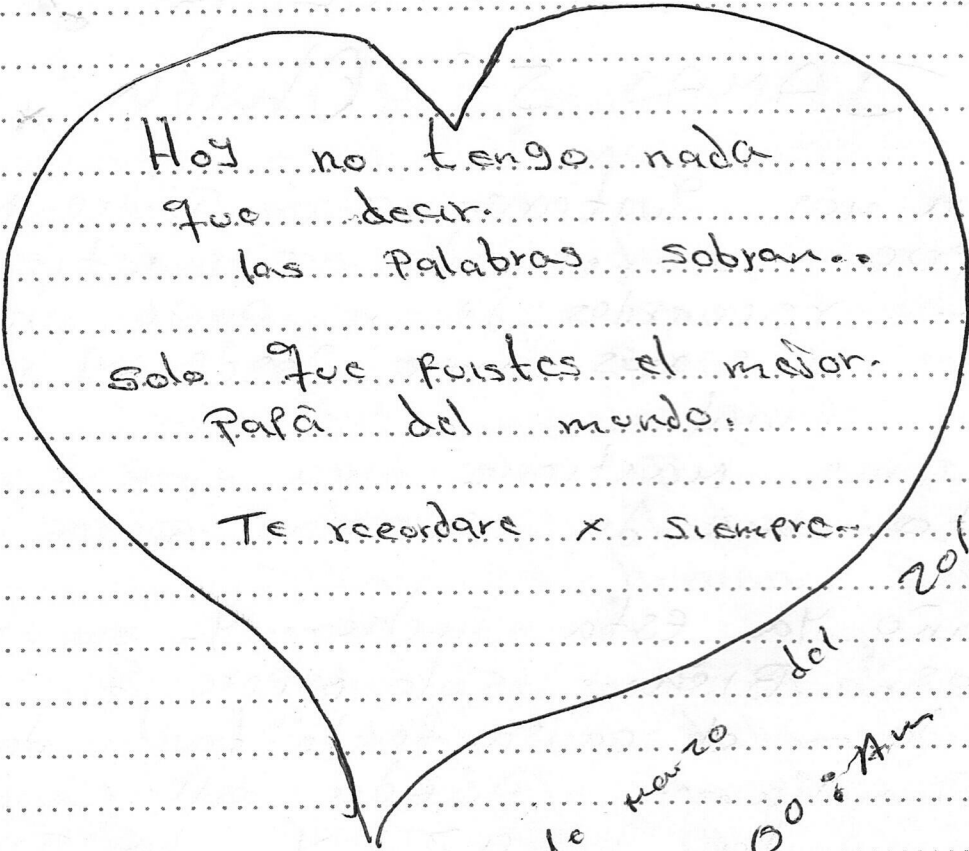 Hoy no tengo nada
que decir.
las Palabras sobran..
solo que fuistes el mejor.
Papá del mundo.
Te recordare x siempre..
marzo del 201
00:Am